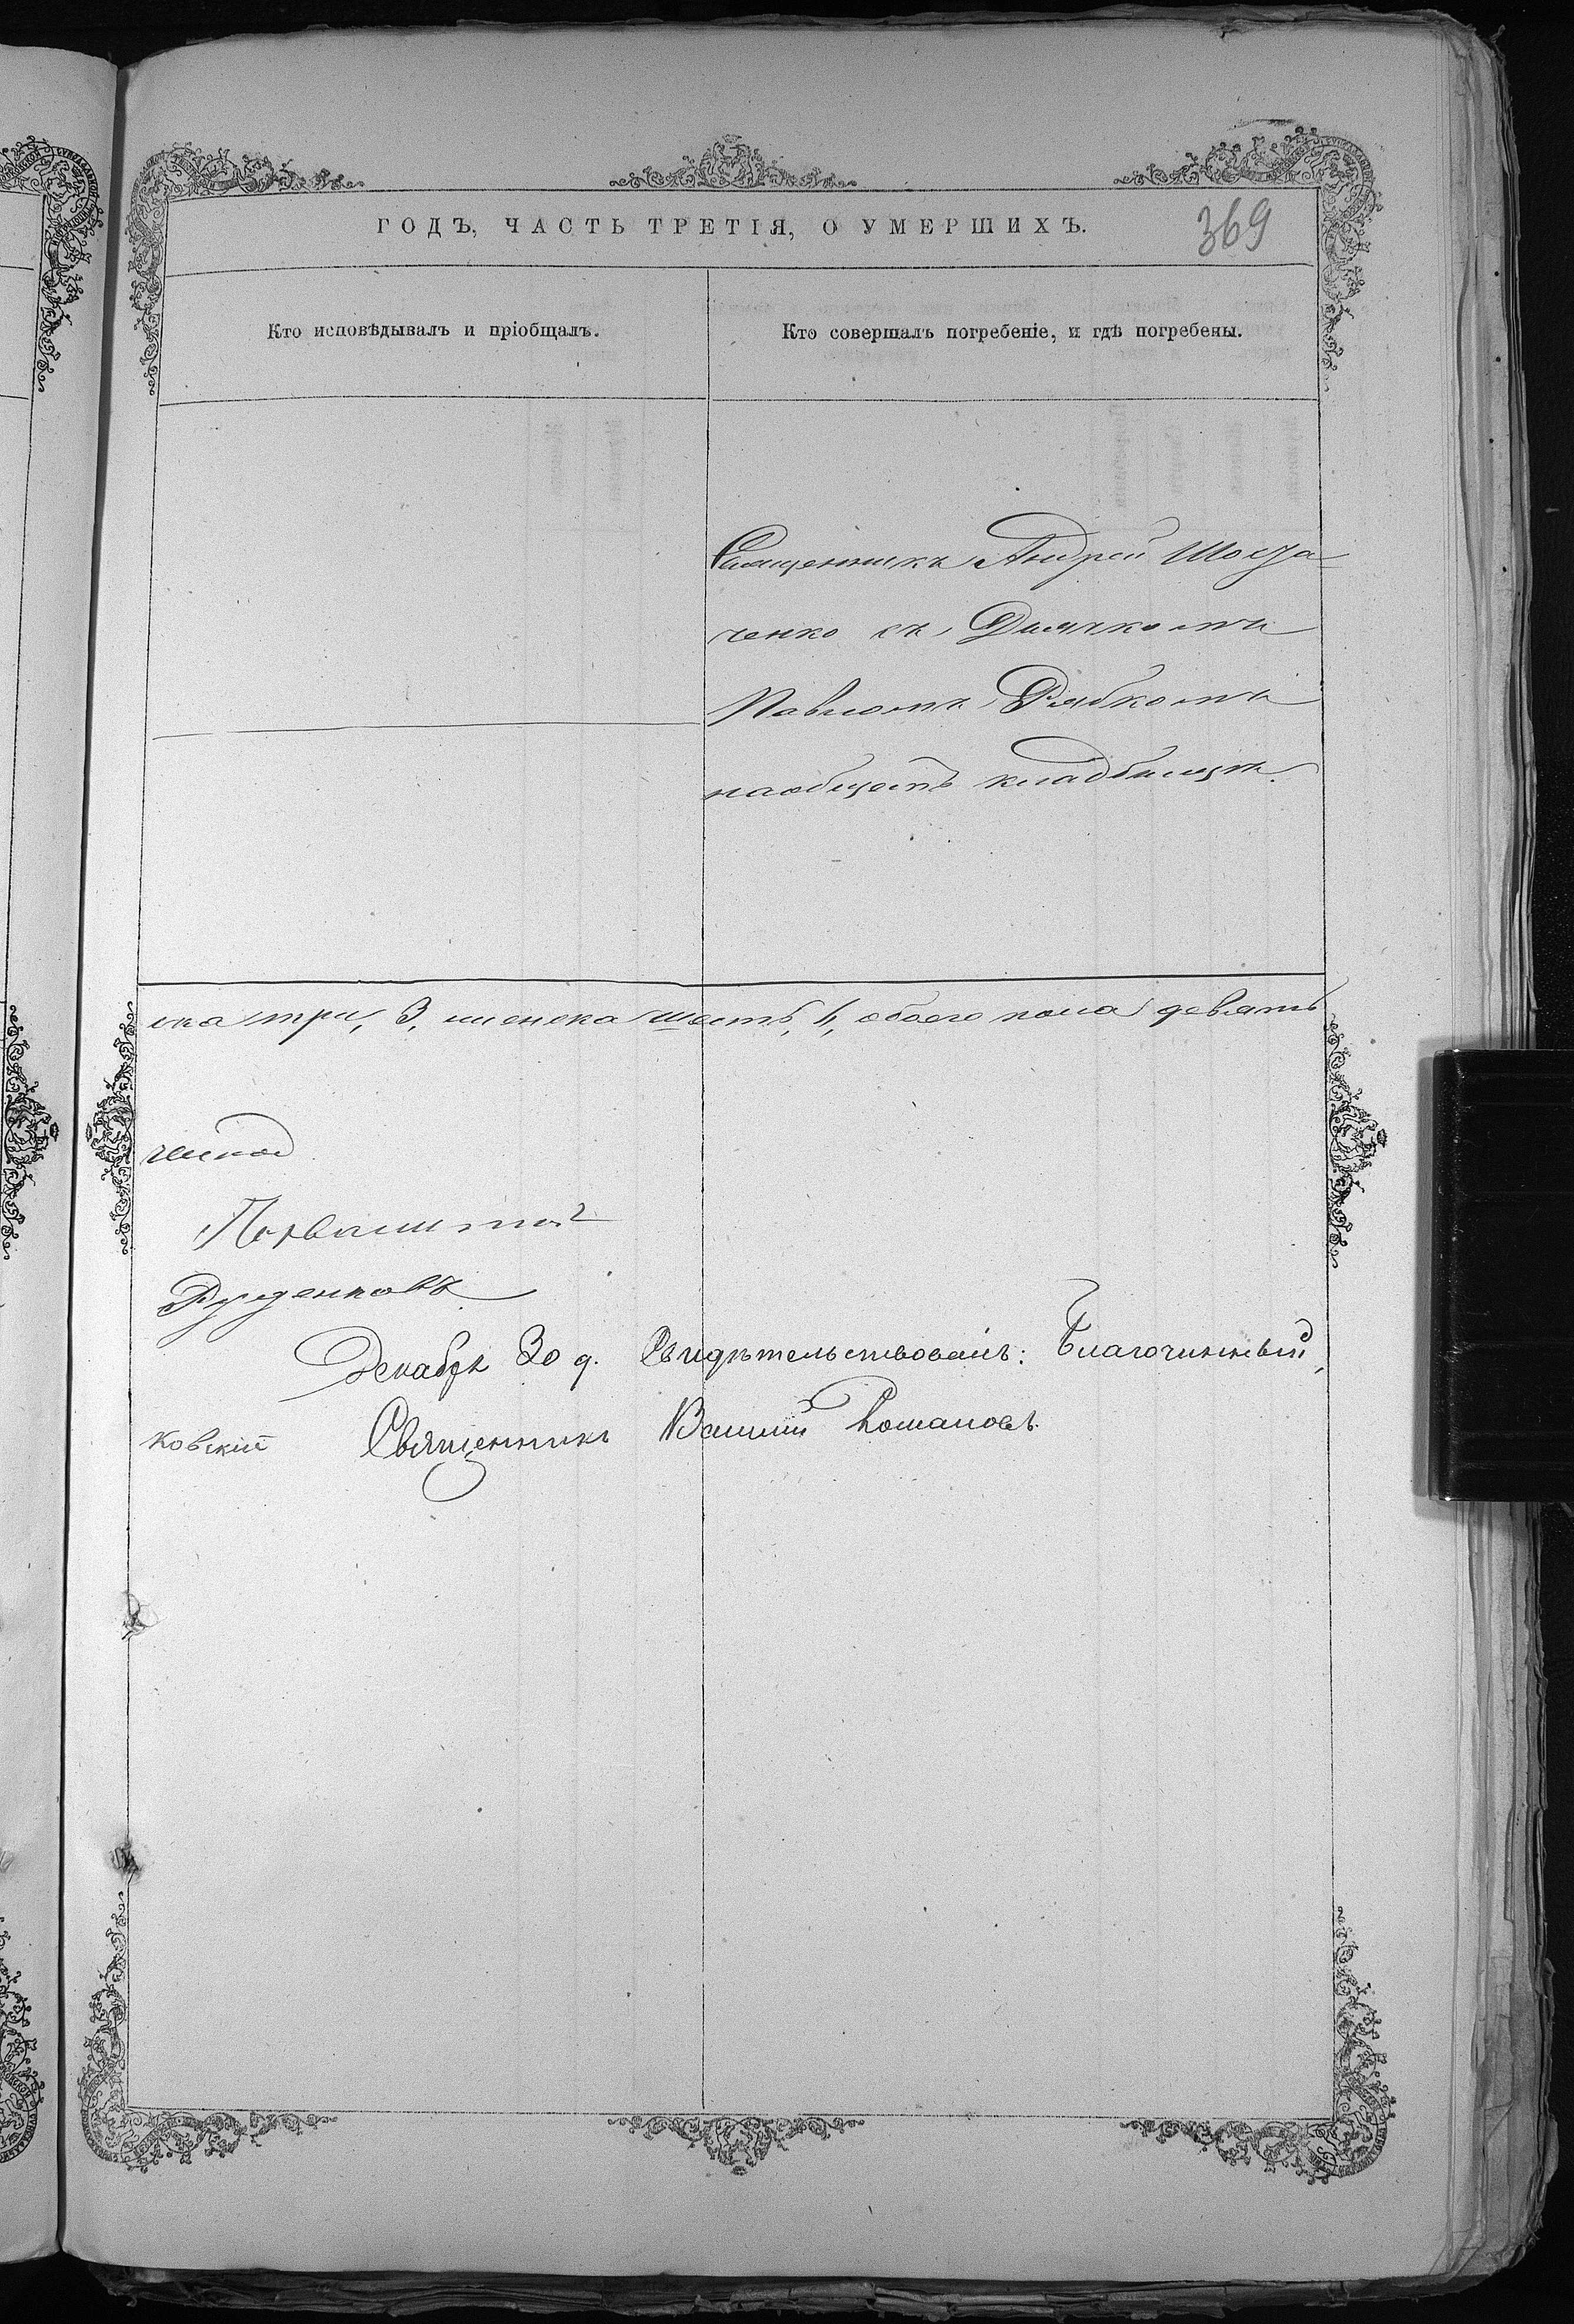 ГОДЪ, ЧАСТЬ ТРЕТІЯ, О УМЕРШИХЪ.
369
Кто исповѣдывалъ и пріобщалъ.
Кто совершалъ погребеніе, и гдѣ погребены.
Священникъ Андрей Шоста-
ченко съ Дьячкомъ
Павломъ Рябкомъ
на общемъ кладбищѣ.
ска три, 3, женска шесть, 6, обоего пола девять
Руденковъ
Декабря 30 д. Свидѣтельствовалъ: Благочинный,
ковскій Священникъ Василій Романовъ.